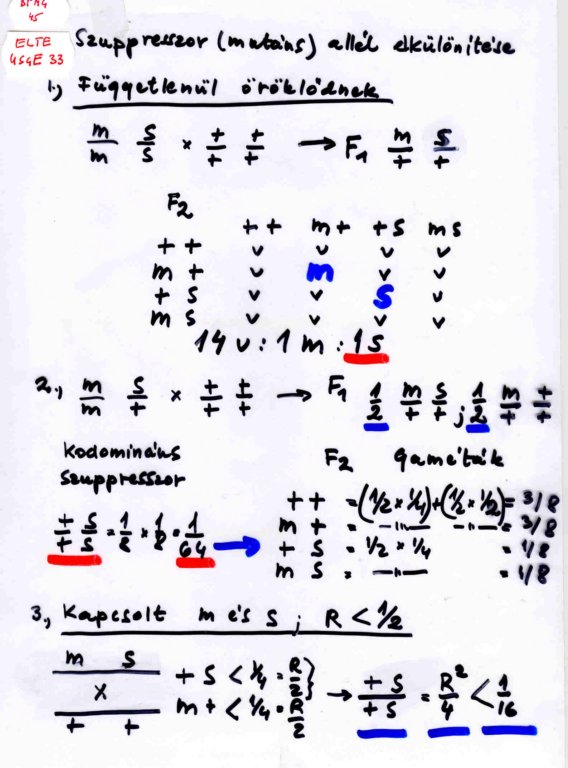 BPMG
45
ELTE
4S4E 33
Szuppresszor (mutáns) allél elkülönítése
1.) Függetlenül öröklődnek
m/m S/S × +/+ +/+ → F1 m/+ S/+
F2
++ m+ +S mS
++ v v v v
m+ v m v v
+S v v S v
mS v v v v
14 v : 1 m : 1S
2.) m/m S/+ × +/+ +/+ → F1 1/2 m/+ S/+ ; 1/2 m/+ +/+
Kodomináns
szuppresszor
F2 gaméták
++ = (1/2 × 1/4) + (1/2 × 1/2) = 3/8
m+ = —"— —"— = 3/8
+S = 1/2 × 1/4 = 1/8
mS = —"— = 1/8
+S/+S = 1/8 × 1/8 = 1/64 →
3.) Kapcsolt m és S ; R < 1/2
m S
×
+ +
+S < 1/4 = R/2 }
m+ < 1/4 = R/2
→ +S/+S = R²/4 < 1/16